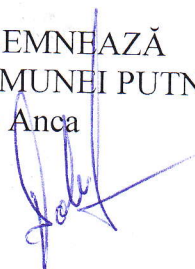 EMNEAZĂ
MUNEI PUTN
Anca